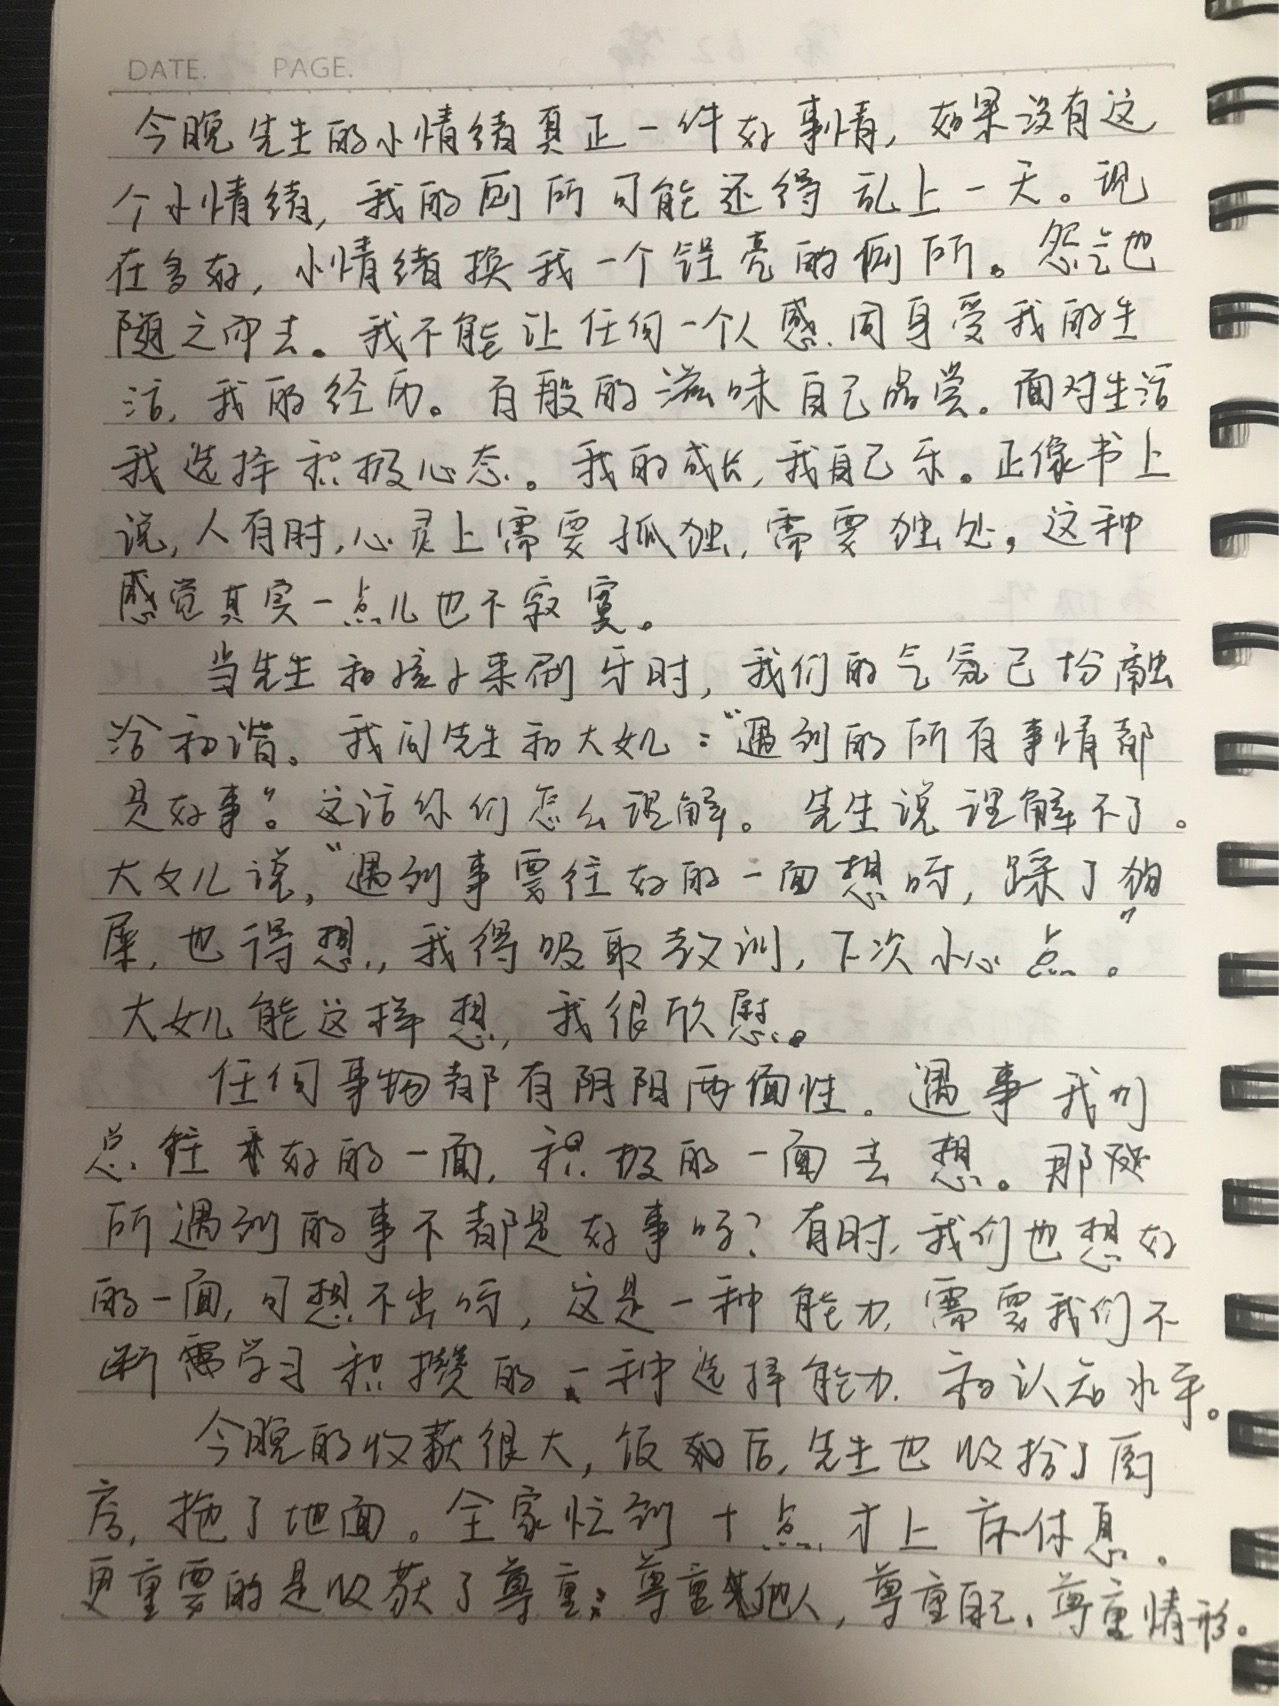 DATE. PAGE.
今晚先生的小情绪真正一件好事情，如果没有这
个小情绪，我的厕所可能还得乱上一天。现
在多好，小情绪换我一个锃亮的厕所。怨气也
随之而去。我不能让任何一个人感同身受我的生
活，我的经历。百般的滋味自己品尝。面对生活
我选择积极心态。我的成长，我自己乐。正像书上
说，人有时，心灵上需要孤独，需要独处，这种
感觉其实一点儿也不寂寞。
当先生和孩子来刷牙时，我们的气氛已份融
洽和谐。我问先生和大女儿：“遇到的所有事情都
是好事”。这话你们怎么理解。先生说理解不了。
大女儿说，“遇到事要往好的一面想呀，踩了狗
屎，也得想，我得吸取教训，下次小心点”。
大女儿能这样想，我很欣慰。
任何事物都有阴阳两面性。遇事我们
总往好的一面，积极的一面去想。那
所遇到的事不都是好事吗？有时，我们也想好
的一面，可想不出呀，这是一种能力，需要我们不
断需学习积攒的一种选择能力，和认知水平。
今晚的收获很大，饭好后，先生也收拾了厨
房，拖了地面。全家忙到十点，才上床休息。
更重要的是收获了尊重：尊重他人，尊重自己，尊重情形。